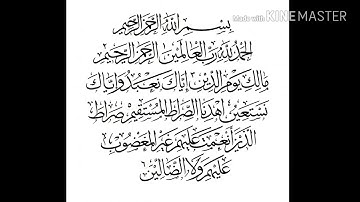 Made with KINEMASTER
بسم الله الرحمن الرحيم
الحمد لله رب العالمين الرحمن الرحيم
مالك يوم الدين إياك نعبد وإياك
نستعين اهدنا الصراط المستقيم صراط
الذين أنعمت عليهم غير المغضوب
عليهم ولا الضالين